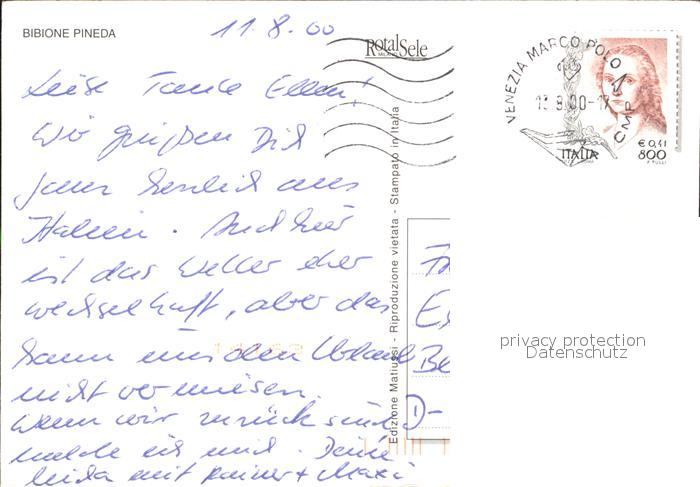 BIBIONE PINEDA
11.8.00
RotalSele
MILANO
VENEZIA MARCO POLO
CMP
ITALIA
€ 0,41
800
Liebe Tante Ellen!
Wir grüßen Dich
ganz herzlich aus
Italien. Auch hier
ist das Wetter eher
wechselhaft, aber das
kann uns den Urlaub
nicht vermiesen.
Wenn wir zurück sind
melde ich mich. Deine
mit Rainer + Maxi
Edizione Matiussi - Riproduzione vietata - Stampato in Italia
D-
privacy protection
Datenschutz